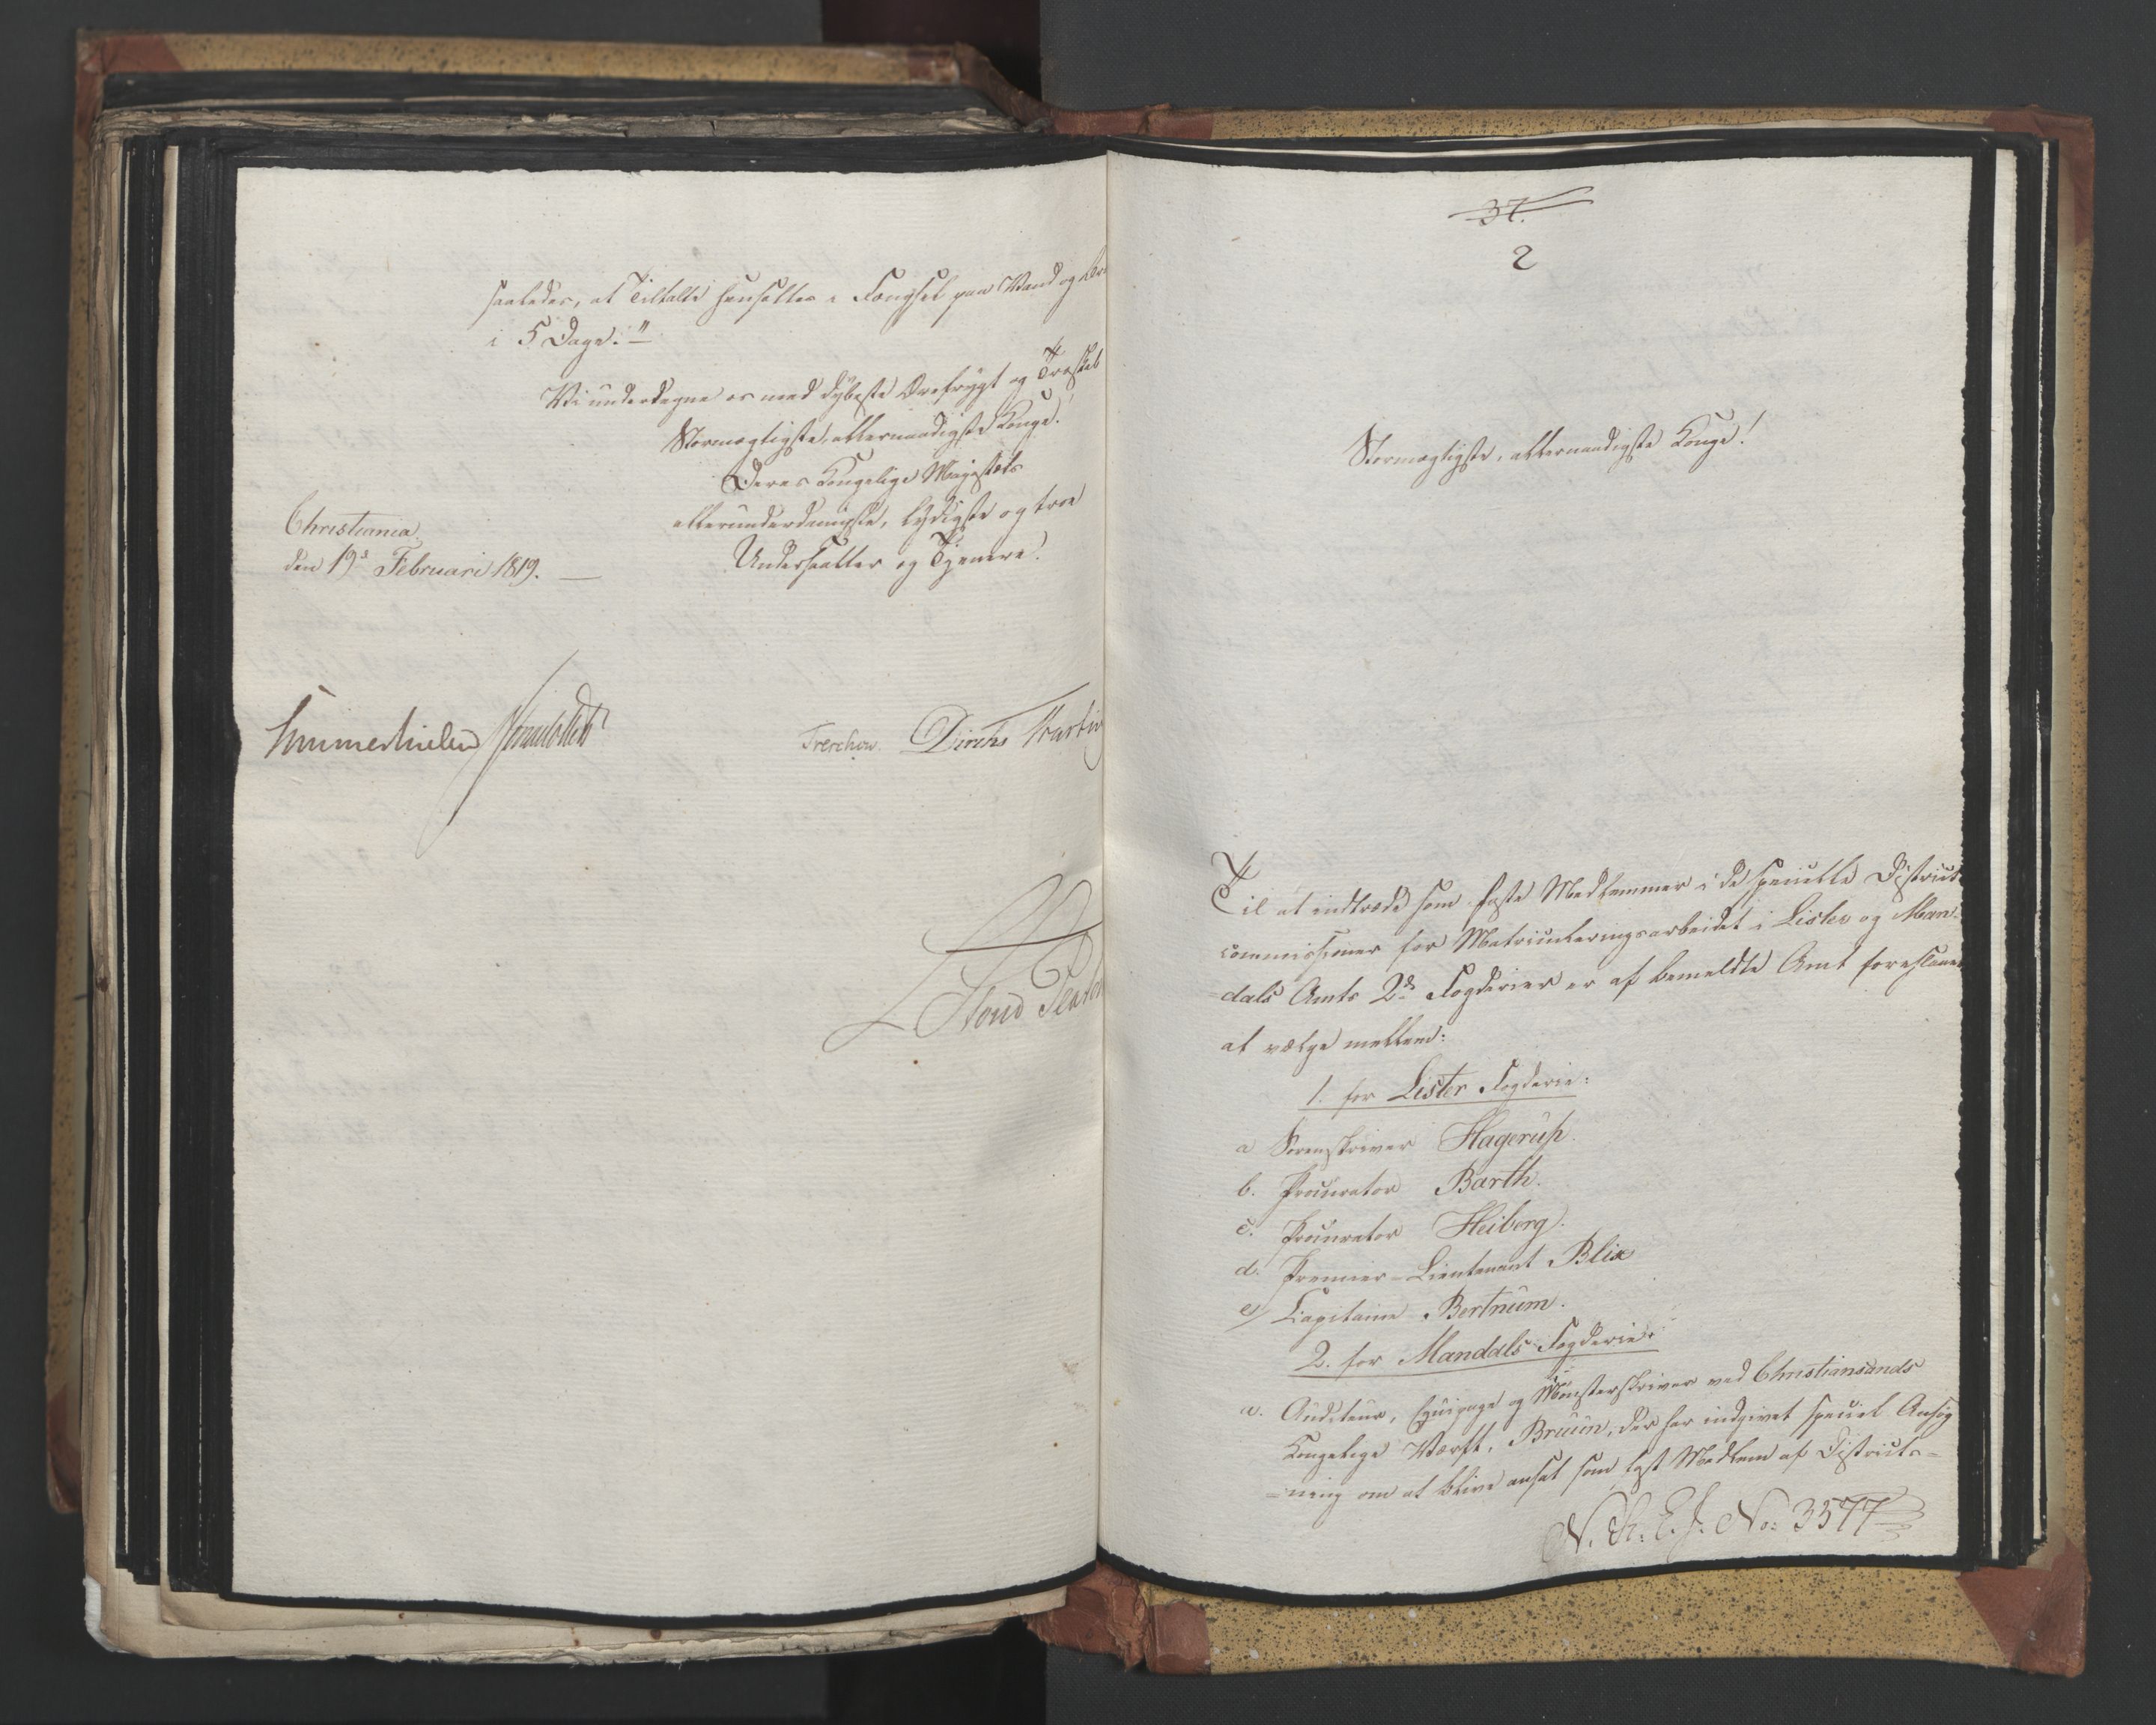 saaledes, at Tiltalte hensættes i Fængsel paa Vand og Brød
i 5 Dage."
Vi undertegne os med dybeste Ærefrygt og Troskab
Stormægtigste, allernaadigste Konge!
Deres Kongelige Majestæts
allerunderdanigste, lydigste og troe
Undersaatter og Tjenere.
Christiania
den 19de Februari 1819.
Sommerhielm
Treschow. Diriks
37.
2
Stormægtigste, allernaadigste Konge!
Til at indtræde som faste Medlemmer i de specielle District
commissioner for Matriculeringsarbeidet i Lister og Man-
dals Amts 2de Fogderier er af bemeldte Amt foreslaaet
at vælge mellem:
1. for Lister Fogderie:
a Sorenskriver Hagerup.
b. Procurator Barth.
c. Procurator Heiberg.
d. Premier-Lieutenant Blix
e/ Capitaine Bertrum.
2. for Mandals Fogderie:
a. Auditeur, Equipage og Mønsterskriver ved Christiansands
Kongelige Værft, Bruun, der har indgivet speciel Ansøg
=ning om at blive ansat som fast Medlem af Districts-
N. R. E. J. No: 3577